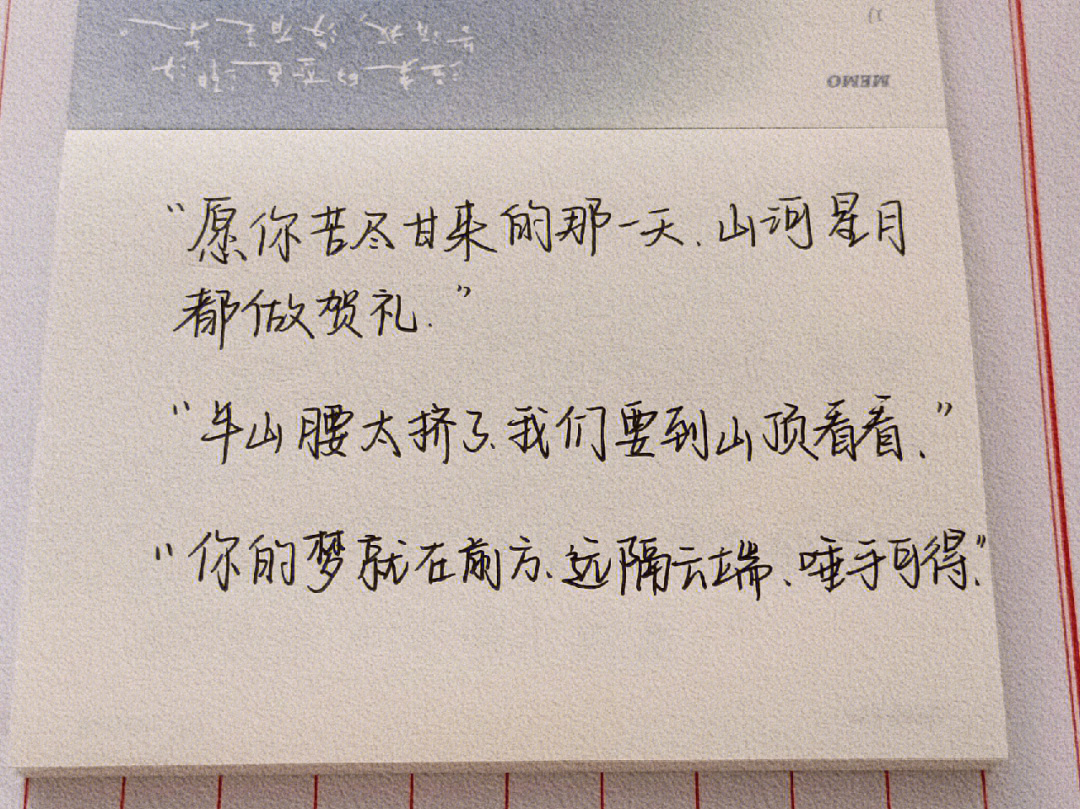 MEMO
“愿你苦尽甘来的那一天、山河星月
都做贺礼.”
“半山腰太挤了、我们要到山顶看看、”
“你的梦就在前方、远隔云端、唾手可得、”